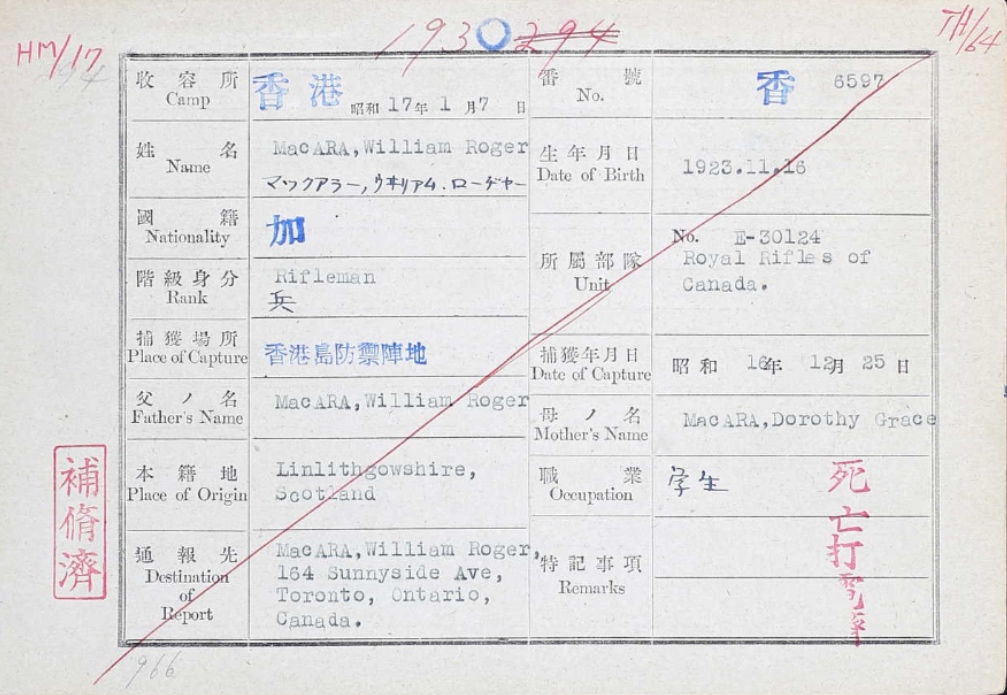 HM/17
1930 294
TH/64
收容所
Camp
香港
昭和 17年 1月7日
番號
No.
香 6597
姓名
Name
MacARA,William Roger
マックアラー,ウヰリアム.ローヂャー
生年月日
Date of Birth
1923.11.16
國籍
Nationality
加
階級身分
Rank
Rifleman
兵
所屬部隊
Unit
No. E-30124
Royal Rifles of
Canada.
捕獲場所
Place of Capture
香港島防禦陣地
捕獲年月日
Date of Capture
昭和 16年 12月 25日
父ノ名
Father's Name
MacARA,William Roger
母ノ名
Mother's Name
MacARA,Dorothy Grace
本籍地
Place of Origin
Linlithgowshire,
Scotland
職業
Occupation
学生
通報先
Destination
of
Report
MacARA,William Roger,
164 Sunnyside Ave,
Toronto, Ontario,
Canada.
特記事項
Remarks
死亡打電
補脩濟
966